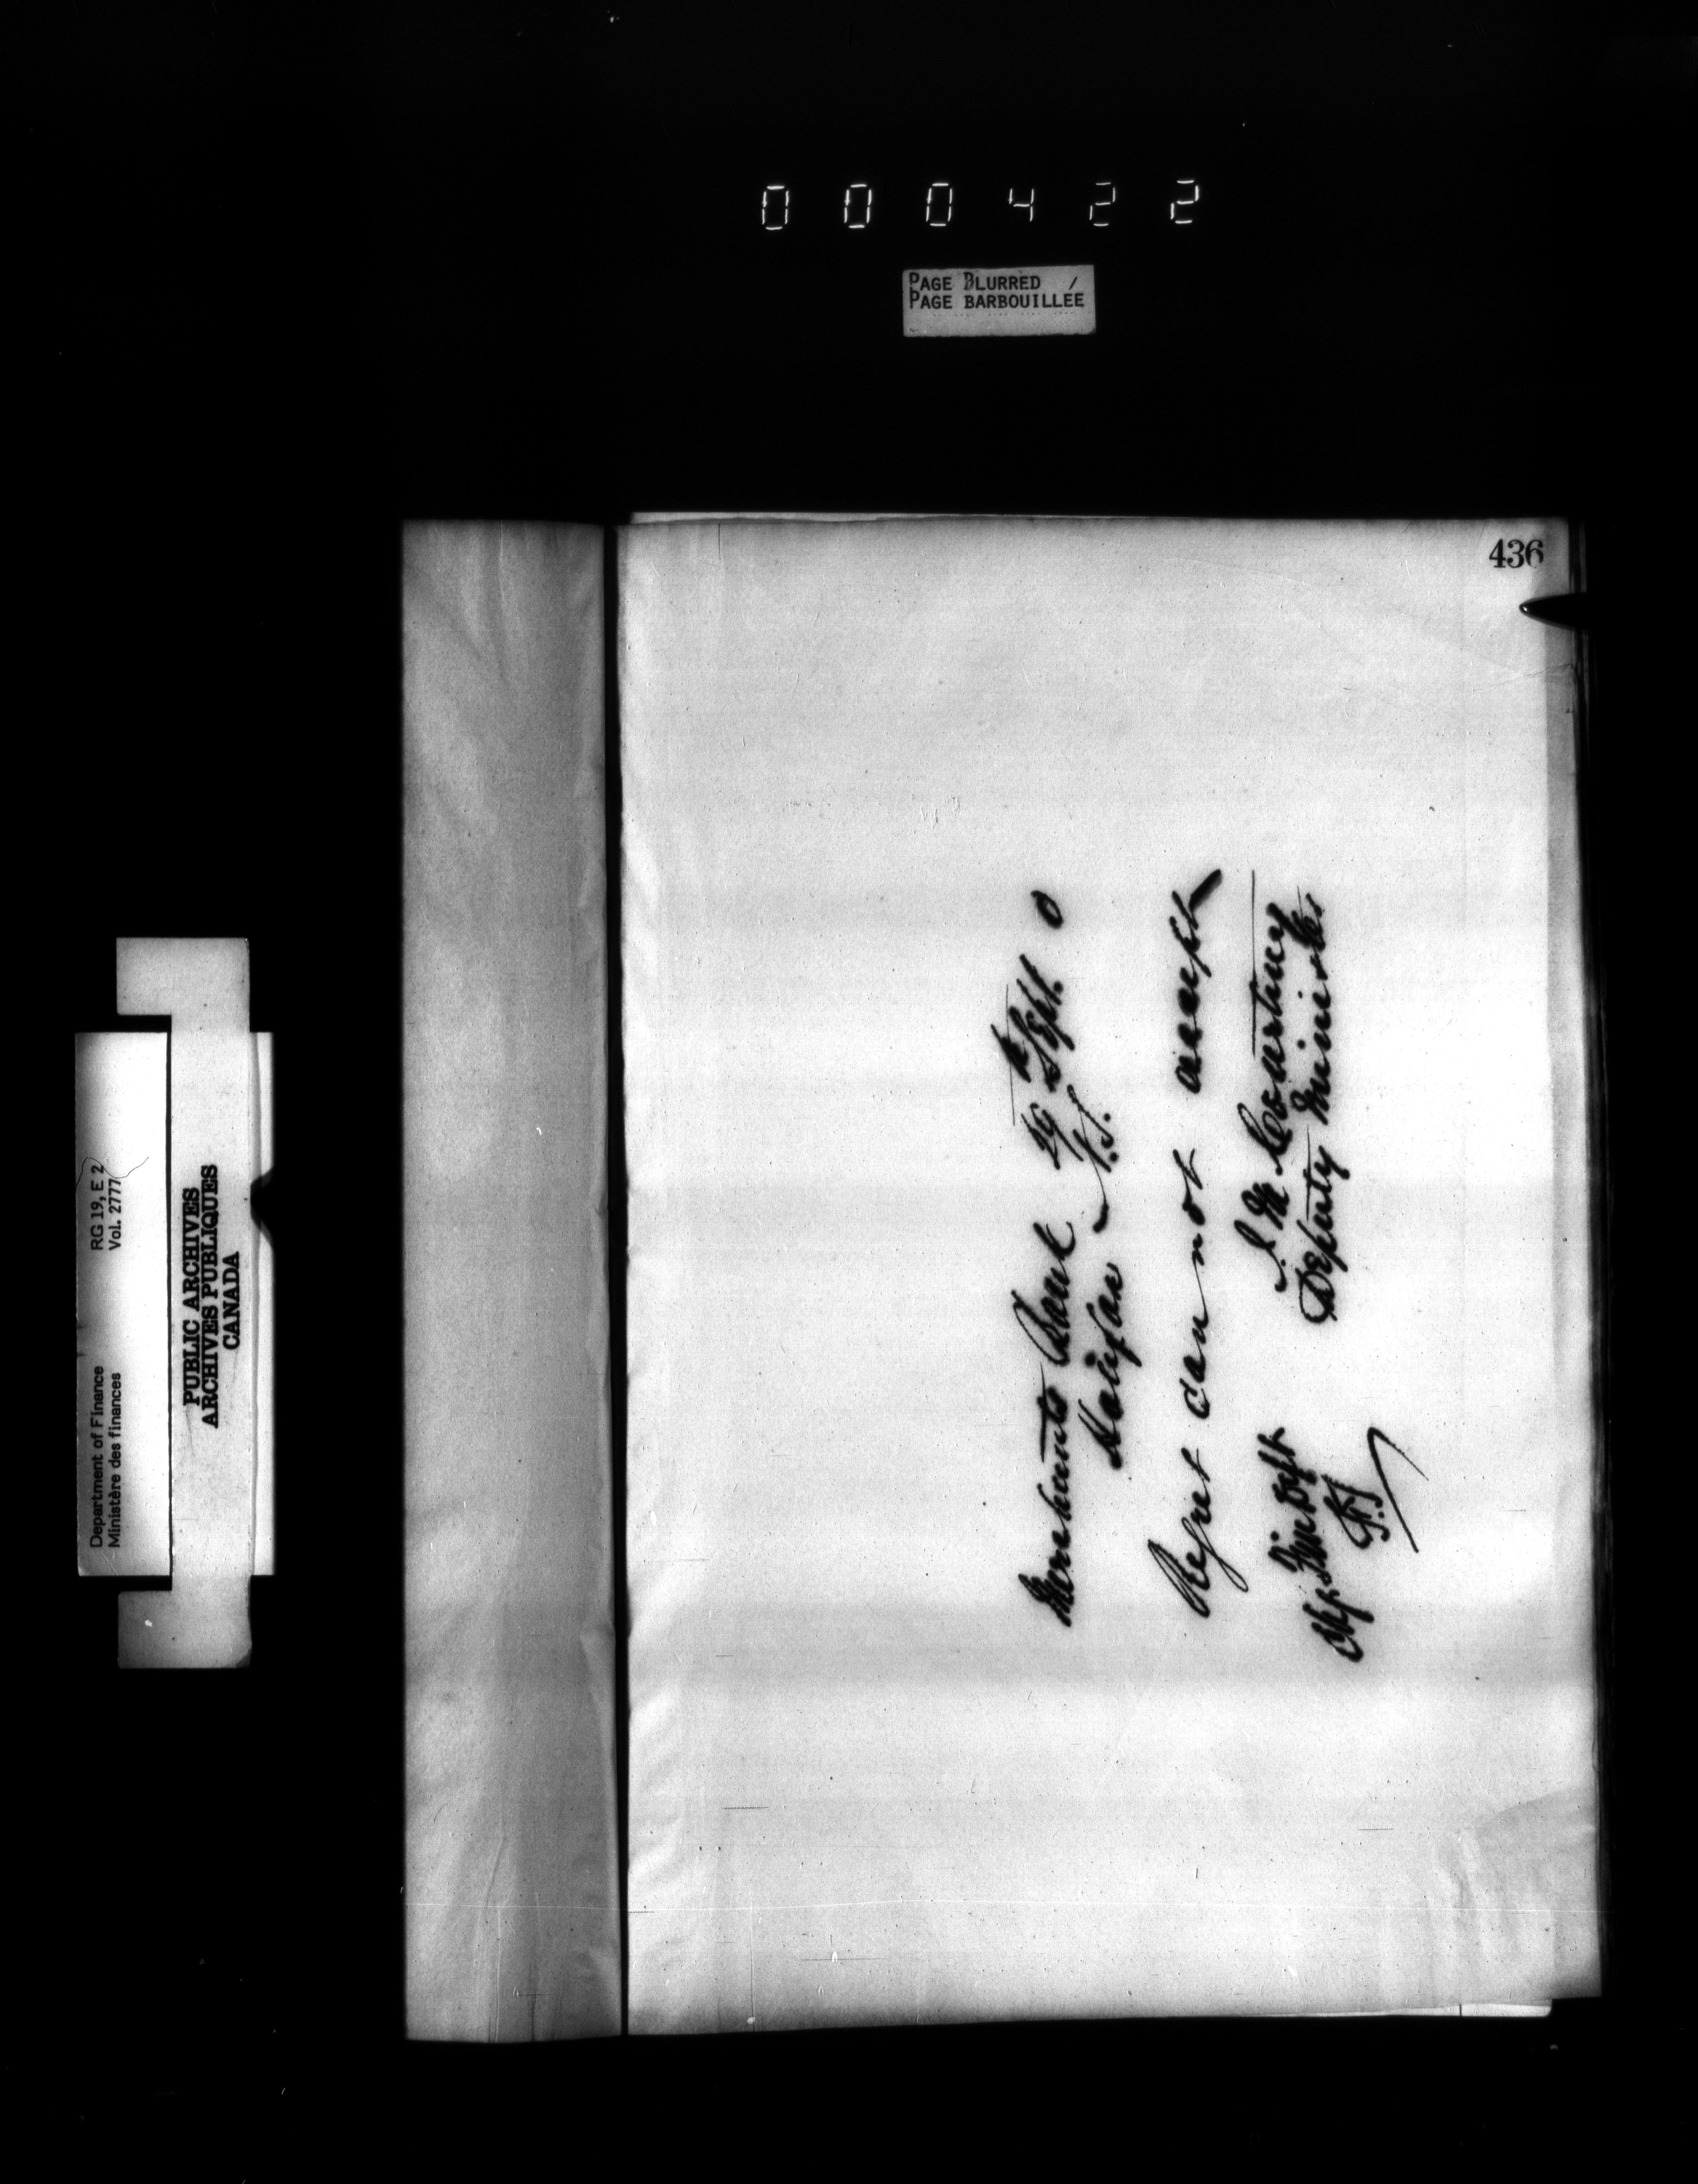 000422
PAGE BLURRED /
PAGE BARBOUILLEE
436
Merchants Bank 29th Sept. 0
Halifax N.S.
Regret can not accept
J. M. Courtney
Deputy Minister
Chg. Fin Dept
Department of Finance RG 19, E 2
Ministère des finances Vol. 2777
PUBLIC ARCHIVES
ARCHIVES PUBLIQUES
CANADA